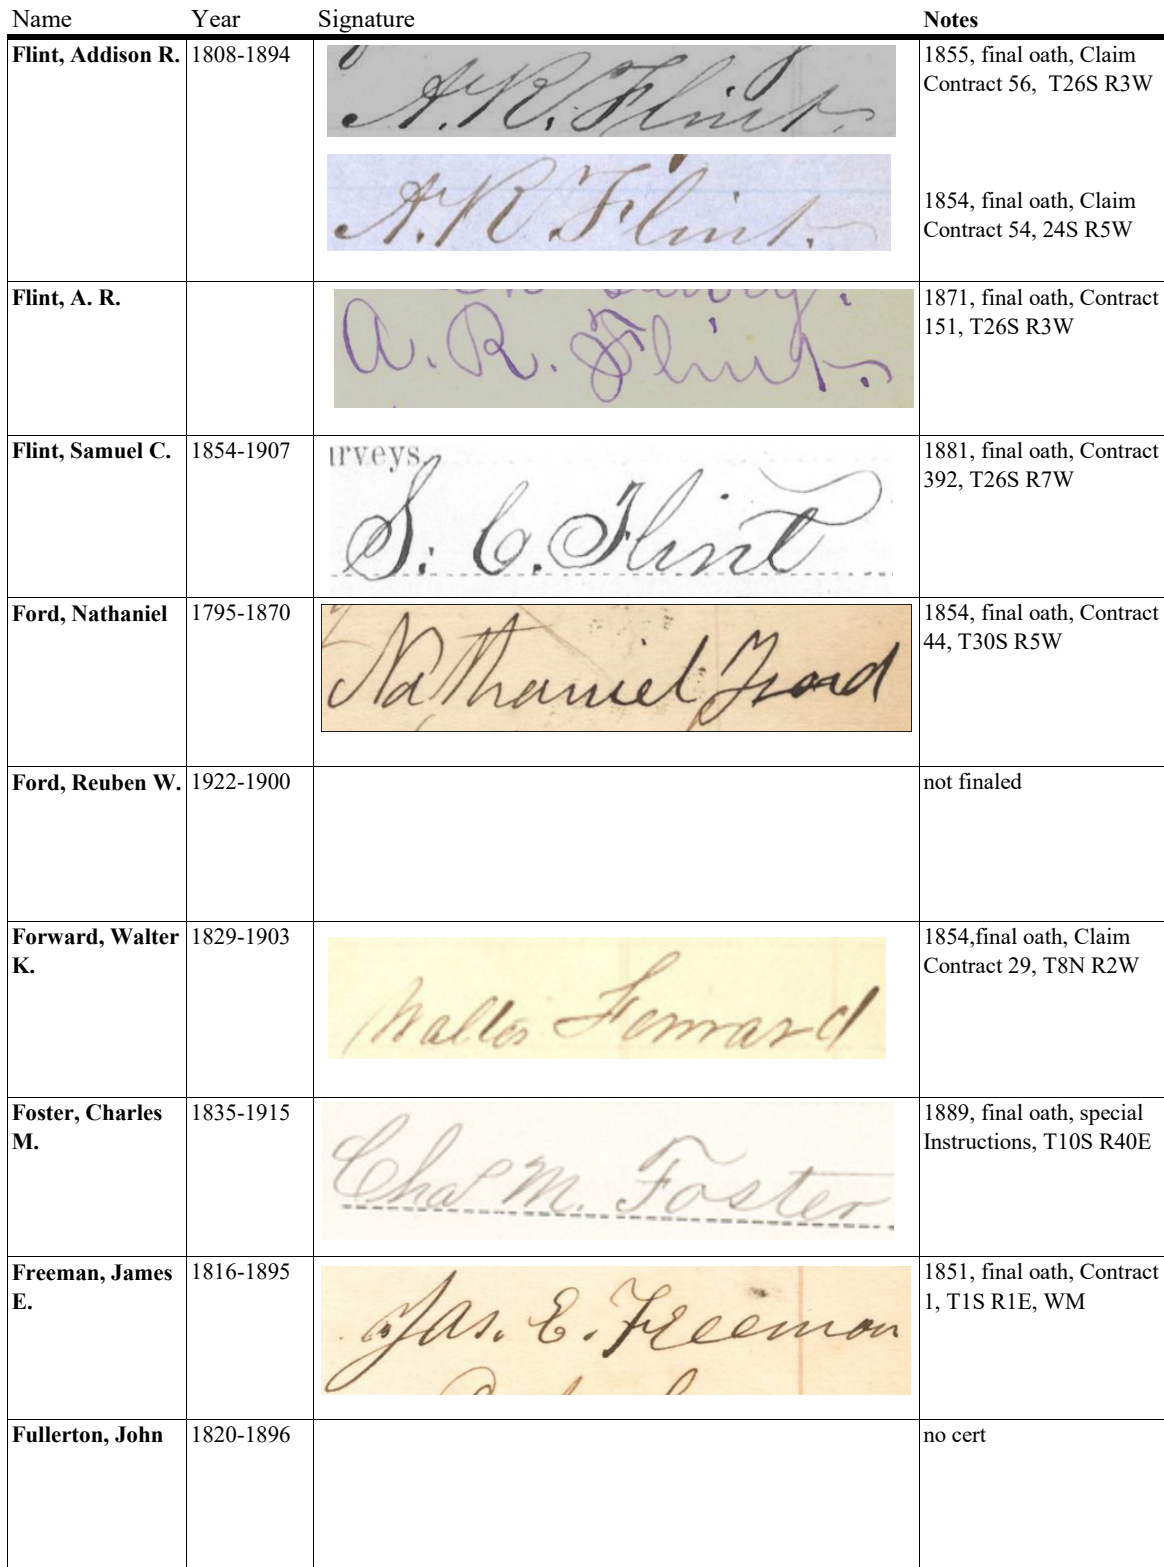 Name Year Signature Notes
Flint, Addison R. 1808-1894 A. R. Flint. 1855, final oath, Claim
Contract 56, T26S R3W
A. R. Flint. 1854, final oath, Claim
Contract 54, 24S R5W
Flint, A. R. A. R. Flint. 1871, final oath, Contract
151, T26S R3W
Flint, Samuel C. 1854-1907 urveys 1881, final oath, Contract
S. C. Flint 392, T26S R7W
Ford, Nathaniel 1795-1870 Nathaniel Ford 1854, final oath, Contract
44, T30S R5W
Ford, Reuben W. 1922-1900 not finaled
Forward, Walter 1829-1903 Walter Forward 1854,final oath, Claim
K. Contract 29, T8N R2W
Foster, Charles 1835-1915 Chas M. Foster 1889, final oath, special
M. Instructions, T10S R40E
Freeman, James 1816-1895 Jas. E. Freeman 1851, final oath, Contract
E. 1, T1S R1E, WM
Fullerton, John 1820-1896 no cert